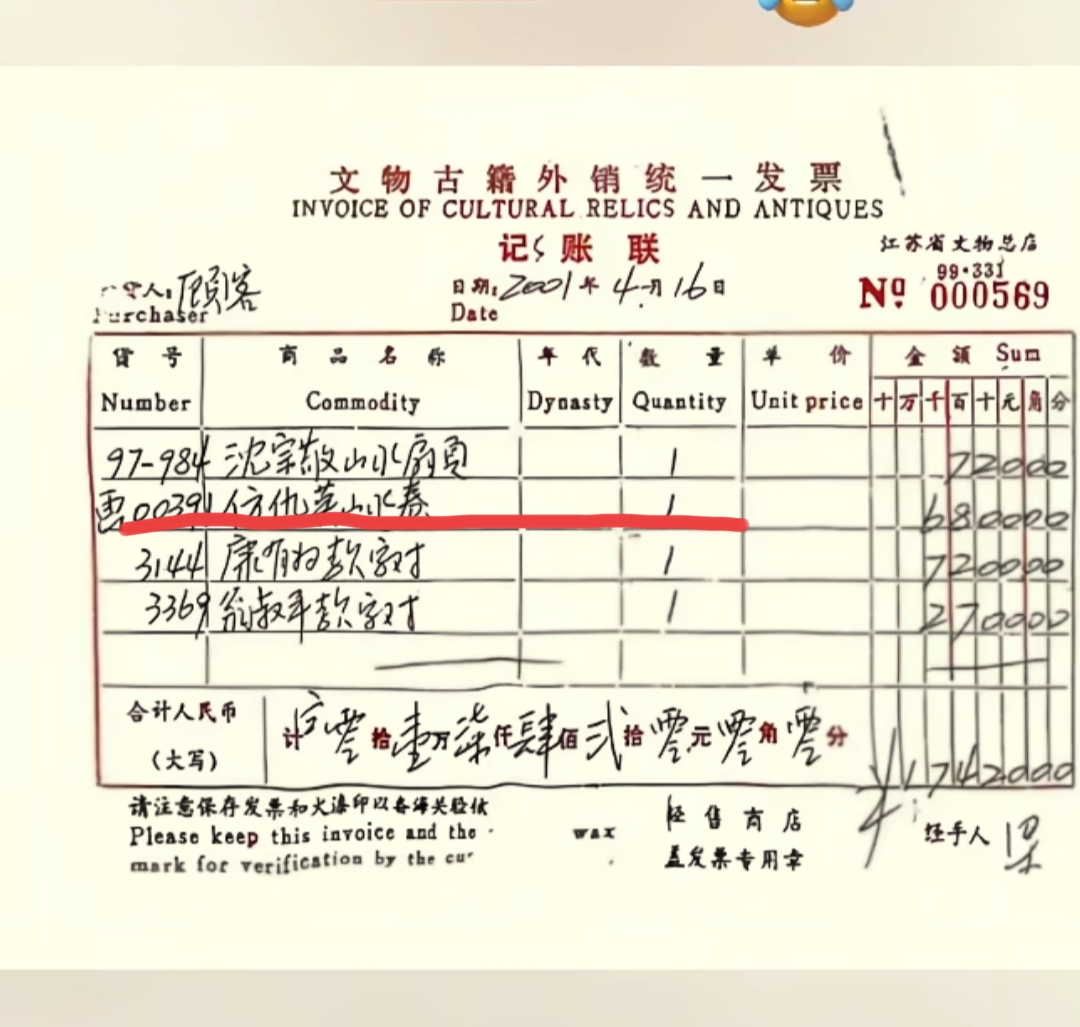 文物古籍外销统一发票
INVOICE OF CULTURAL RELICS AND ANTIQUES
记账联
江苏省文物总店
人:顾客
Purchaser
日期:2001年4月16日
Date
99·331
Nº 000569
货号 商品名称 年代 数量 单价 金额 Sum
Number Commodity Dynasty Quantity Unit price 十万千百十元角分
97-984 沈宗敬山水扇页 1 72000
0039 仿仇英山水卷 1 680000
3144 康有为款字对 1 720000
3369 翁叔平款字对 1 270000
合计人民币
(大写)
计 零拾壹万柒仟肆佰贰拾零元零角零分 ¥1742000
请注意保存发票和火漆印以备海关验核
Please keep this invoice and the wax
mark for verification by the cu
经售商店
盖发票专用章
经手人